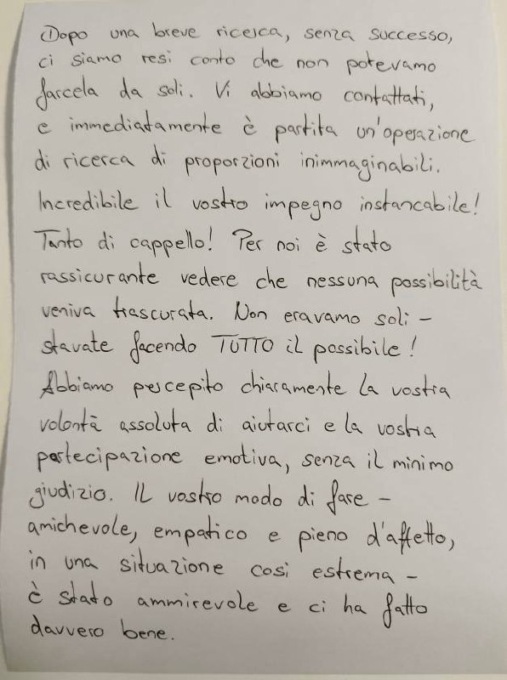 Dopo una breve ricerca, senza successo,
ci siamo resi conto che non potevamo
farcela da soli. Vi abbiamo contattati,
e immediatamente è partita un'operazione
di ricerca di proporzioni inimmaginabili.
Incredibile il vostro impegno instancabile!
Tanto di cappello! Per noi è stato
rassicurante vedere che nessuna possibilità
veniva trascurata. Non eravamo soli –
stavate facendo TUTTO il possibile!
Abbiamo percepito chiaramente la vostra
volontà assoluta di aiutarci e la vostra
partecipazione emotiva, senza il minimo
giudizio. Il vostro modo di fare –
amichevole, empatico e pieno d'affetto,
in una situazione così estrema –
è stato ammirevole e ci ha fatto
davvero bene.